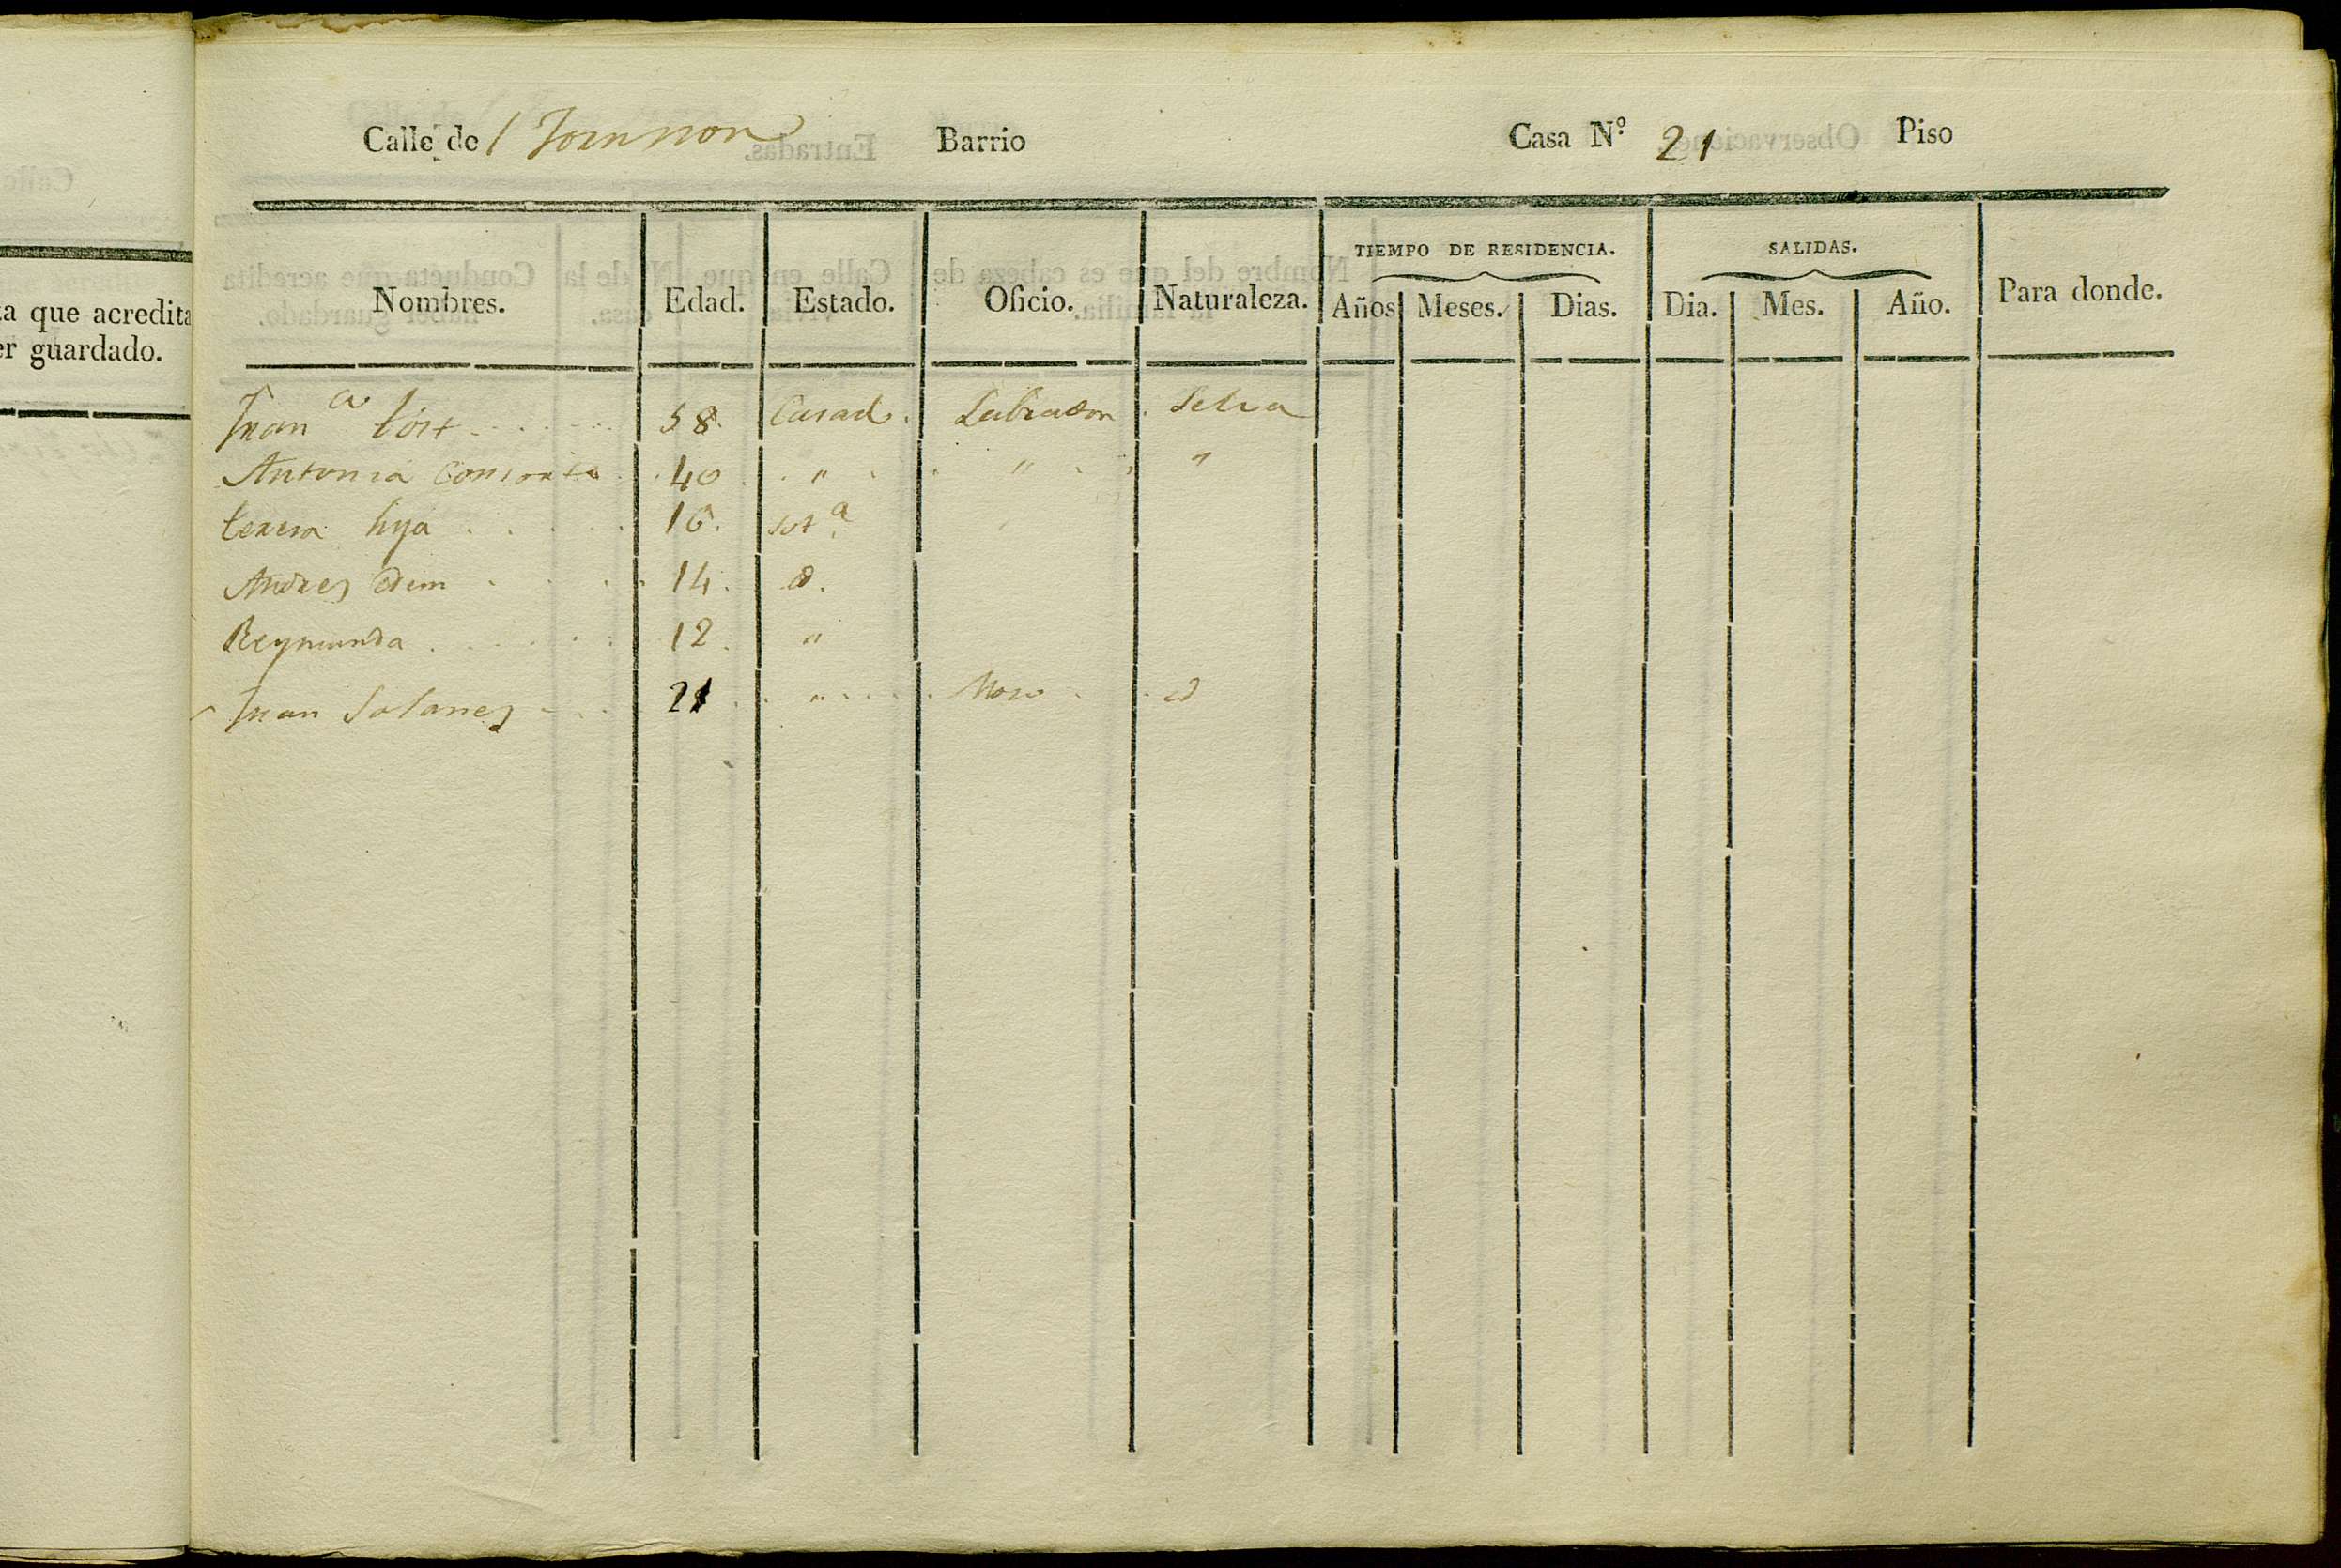 Calle de / Barrio Casa Nº 21 Piso
ta que acredita
er guardado.
Nombres. Edad. Estado. Oficio. Naturaleza. TIEMPO DE RESIDENCIA. Años Meses. Dias. SALIDAS. Dia. Mes. Año. Para donde.
58. Casad. Labrador. Selva
Antonia Consorte 40 " " "
teresa hija 16. Sol.ª
Andres Edem 14. d.
Reymunda 12. "
Juan Solanes 21 " Moso id